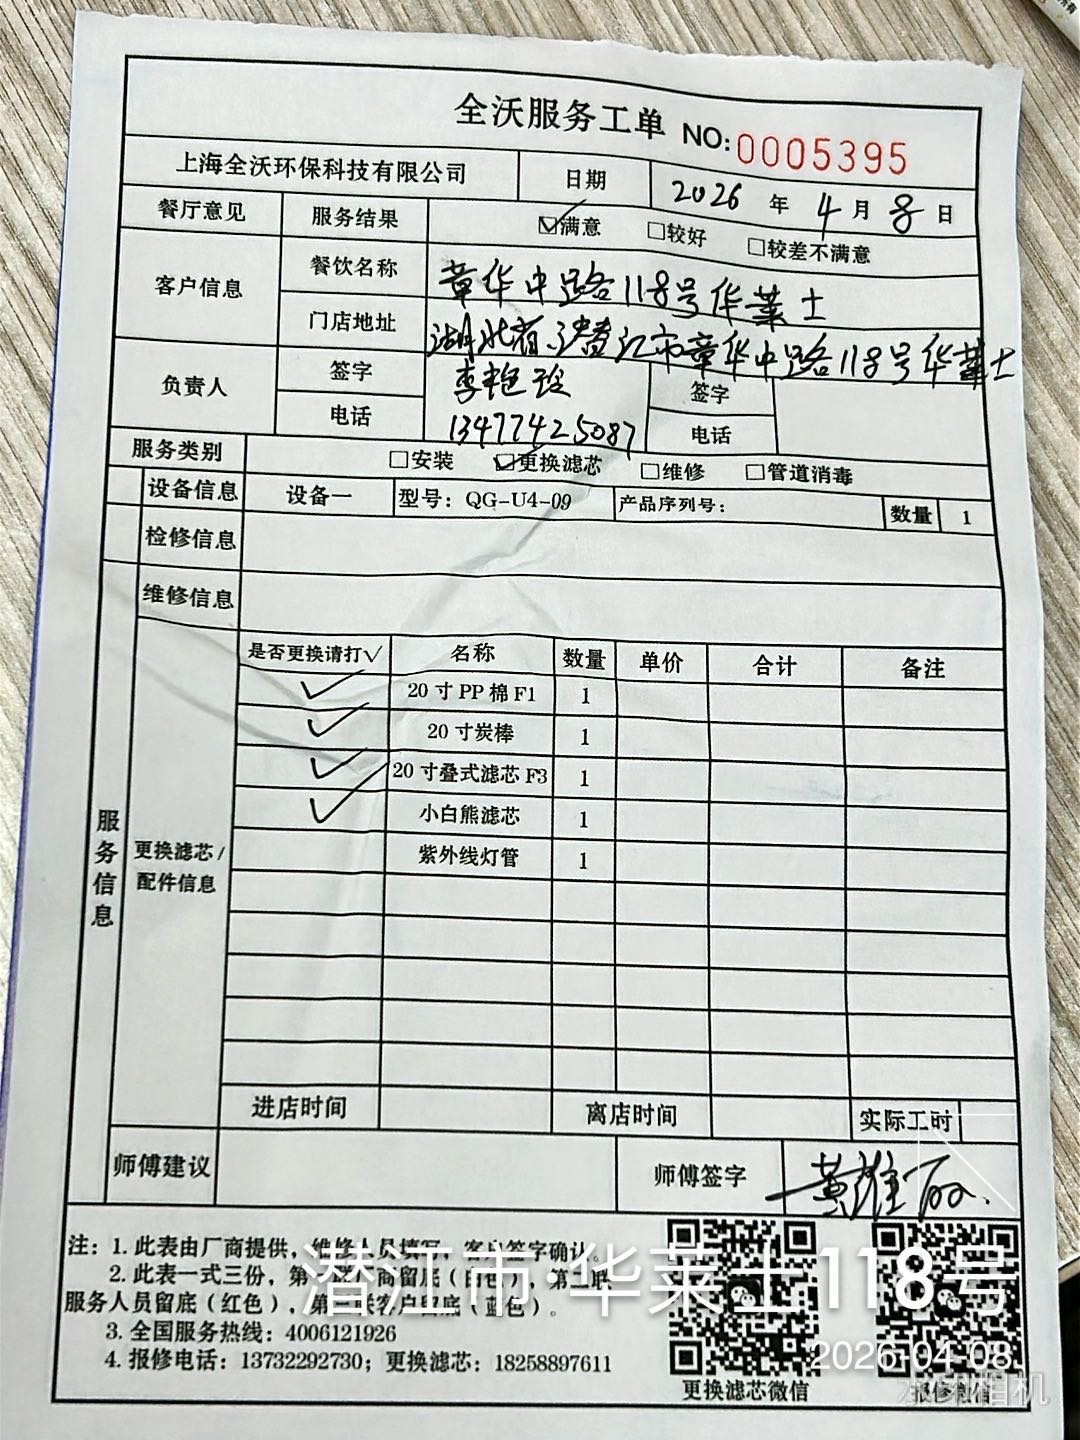 全沃服务工单 NO:0005395
上海全沃环保科技有限公司 日期 2026 年 4 月 8 日
餐厅意见 服务结果 ☑满意 □较好 □较差不满意
客户信息 餐饮名称 章华中路118号华莱士
门店地址 湖北省潜江市章华中路118号华莱士
负责人 签字 李艳玲 签字
电话 13477425087 电话
服务类别 □安装 ☑更换滤芯 □维修 □管道消毒
设备信息 设备一 型号：QG-U4-09 产品序列号： 数量 1
检修信息
维修信息
服务信息
更换滤芯/
配件信息
是否更换请打√ 名称 数量 单价 合计 备注
✓ 20寸PP棉F1 1
✓ 20寸炭棒 1
✓ 20寸叠式滤芯F3 1
✓ 小白熊滤芯 1
紫外线灯管 1
进店时间 离店时间 实际工时
师傅建议 师傅签字 黄雄
注：1.此表由厂商提供，维修人员填写，客户签字确认。
2.此表一式三份，第一联厂商留底（白色），第二联
服务人员留底（红色），第三联客户留底（蓝色）。
3.全国服务热线：4006121926
4.报修电话：13732292730；更换滤芯：18258897611
更换滤芯微信 报修微信
潜江市·华莱士118号
2026-04-08
水印相机